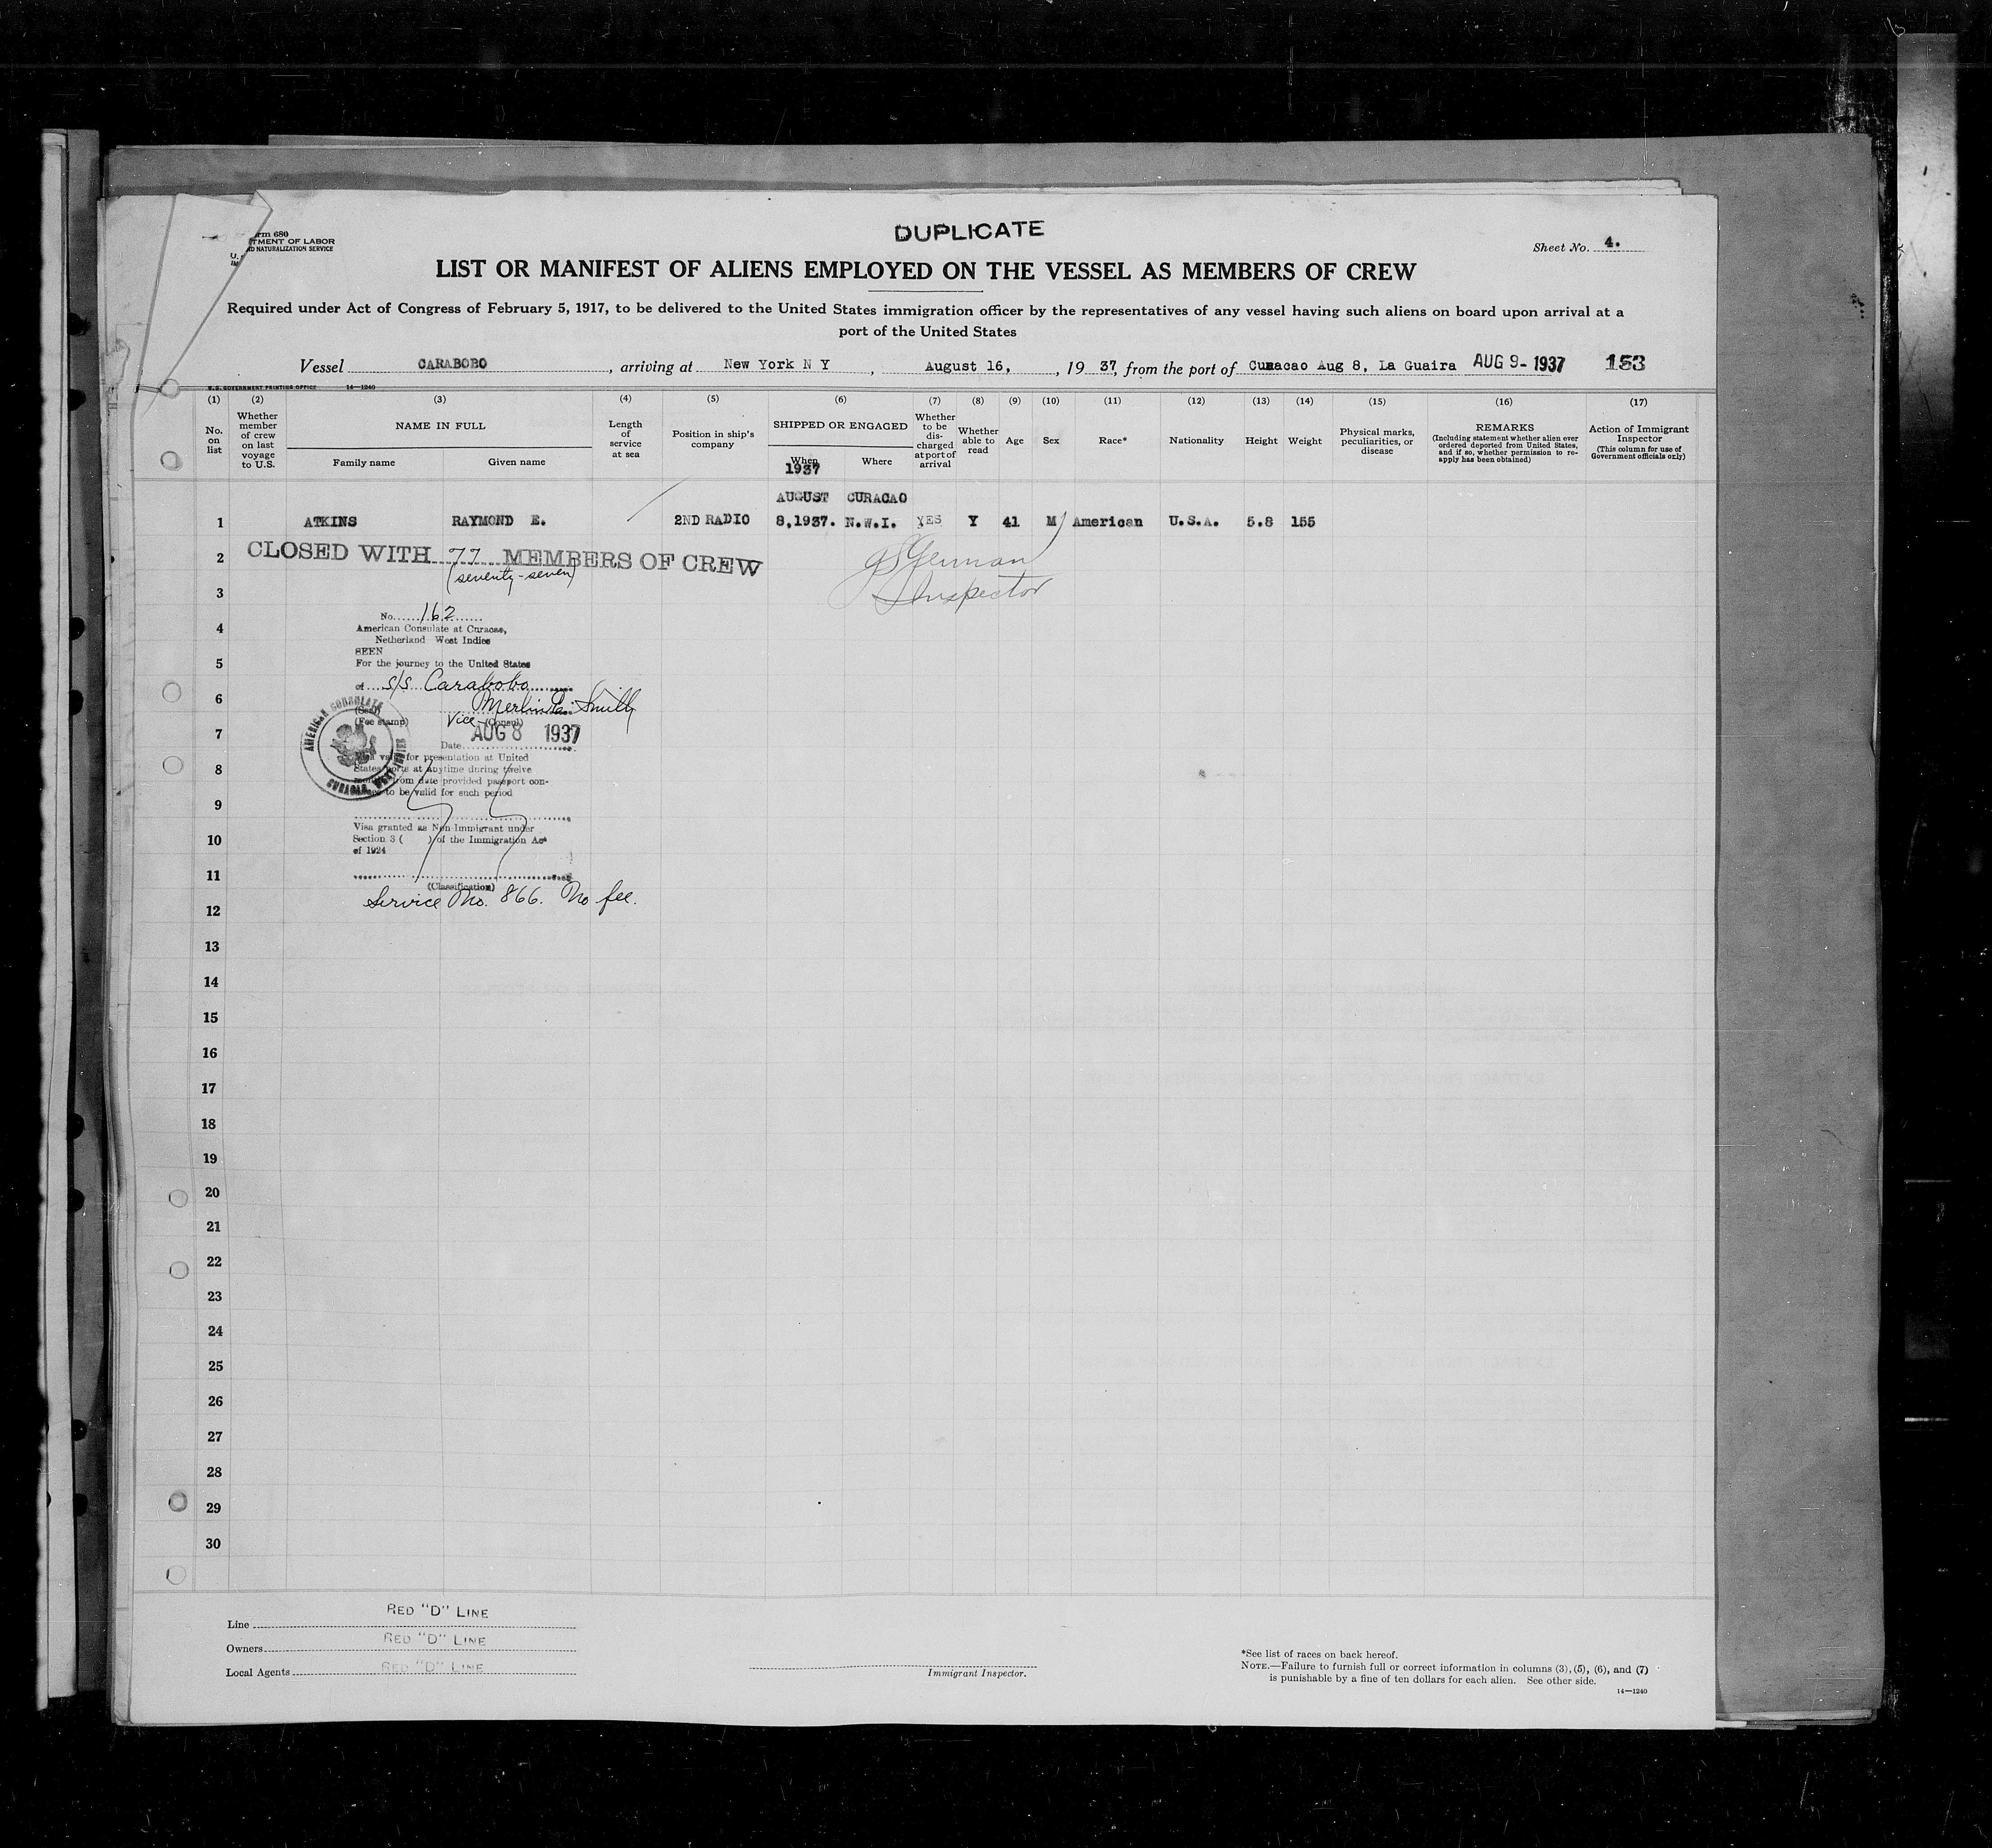 DUPLICATE
rm 680
TMENT OF LABOR
D NATURALIZATION SERVICE
U.
Sheet No. 4.
LIST OR MANIFEST OF ALIENS EMPLOYED ON THE VESSEL AS MEMBERS OF CREW
Required under Act of Congress of February 5, 1917, to be delivered to the United States immigration officer by the representatives of any vessel having such aliens on board upon arrival at a
port of the United States
Vessel CARABOBO, arriving at New York N Y, August 16, , 19 37, from the port of Curacao Aug 8, La Guaira AUG 9- 1937 153
U. S. GOVERNMENT PRINTING OFFICE 14—1240
(1) (2) (3) (4) (5) (6) (7) (8) (9) (10) (11) (12) (13) (14) (15) (16) (17)
No. on list
Whether member of crew on last voyage to U.S.
NAME IN FULL
Family name Given name
Length of service at sea
Position in ship's company
SHIPPED OR ENGAGED
When Where
1937
Whether to be discharged at port of arrival
Whether able to read
Age
Sex
Race*
Nationality
Height
Weight
Physical marks, peculiarities, or disease
REMARKS
(Including statement whether alien ever ordered deported from United States, and if so, whether permission to re-apply has been obtained)
Action of Immigrant Inspector
(This column for use of Government officials only)
AUGUST CURACAO
1 ATKINS RAYMOND E. 2ND RADIO 8,1937. N.W.I. YES Y 41 M American U.S.A. 5.8 155
2 CLOSED WITH 77 MEMBERS OF CREW
(seventy-seven)
3 Inspector
No. 162
4 American Consulate at Curacao,
Netherland West Indies
SEEN
5 For the journey to the United States
of s/s Carabobo
6 Smith
(Seal)
(Fee stamp) Vice (Consul)
7 AUG 8 1937
Date
AMERICAN CONSULATE
CURACAO, WEST INDIES
valid for presentation at United
8 States ports at anytime during twelve
months from date provided passport con-
to be valid for such period
9
Visa granted as Non-Immigrant under
10 Section 3 ( ) of the Immigration Act
of 1924
11
(Classification)
Service No. 866. No fee.
12
13
14
15
16
17
18
19
20
21
22
23
24
25
26
27
28
29
30
Line RED "D" LINE
Owners RED "D" LINE
Local Agents RED "D" LINE
Immigrant Inspector.
*See list of races on back hereof.
NOTE.—Failure to furnish full or correct information in columns (3), (5), (6), and (7)
is punishable by a fine of ten dollars for each alien. See other side.
14—1240